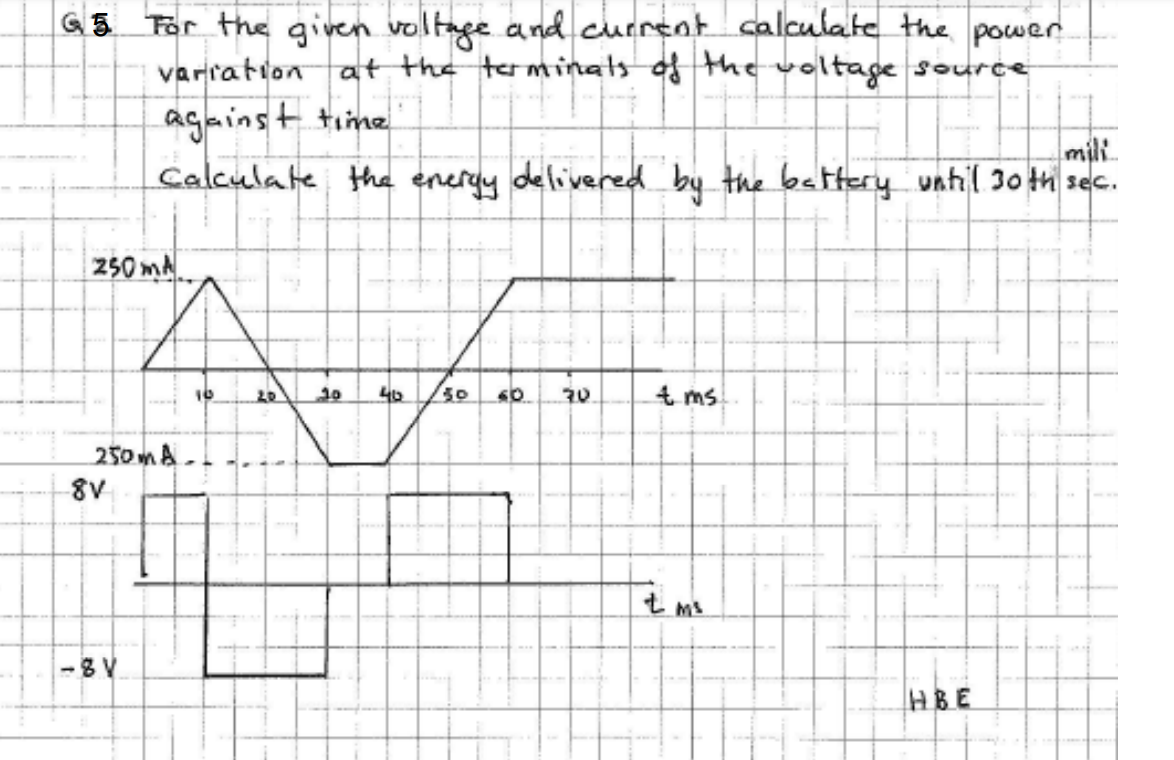 Q 5. For the given voltage and current calculate the power
variation at the terminals of the voltage source
against time
mili
Calculate the energy delivered by the battery until 30th sec.
250mA
10 20 30 40 50 60 70 t ms
250mA
8V
t ms
-8V
HBE